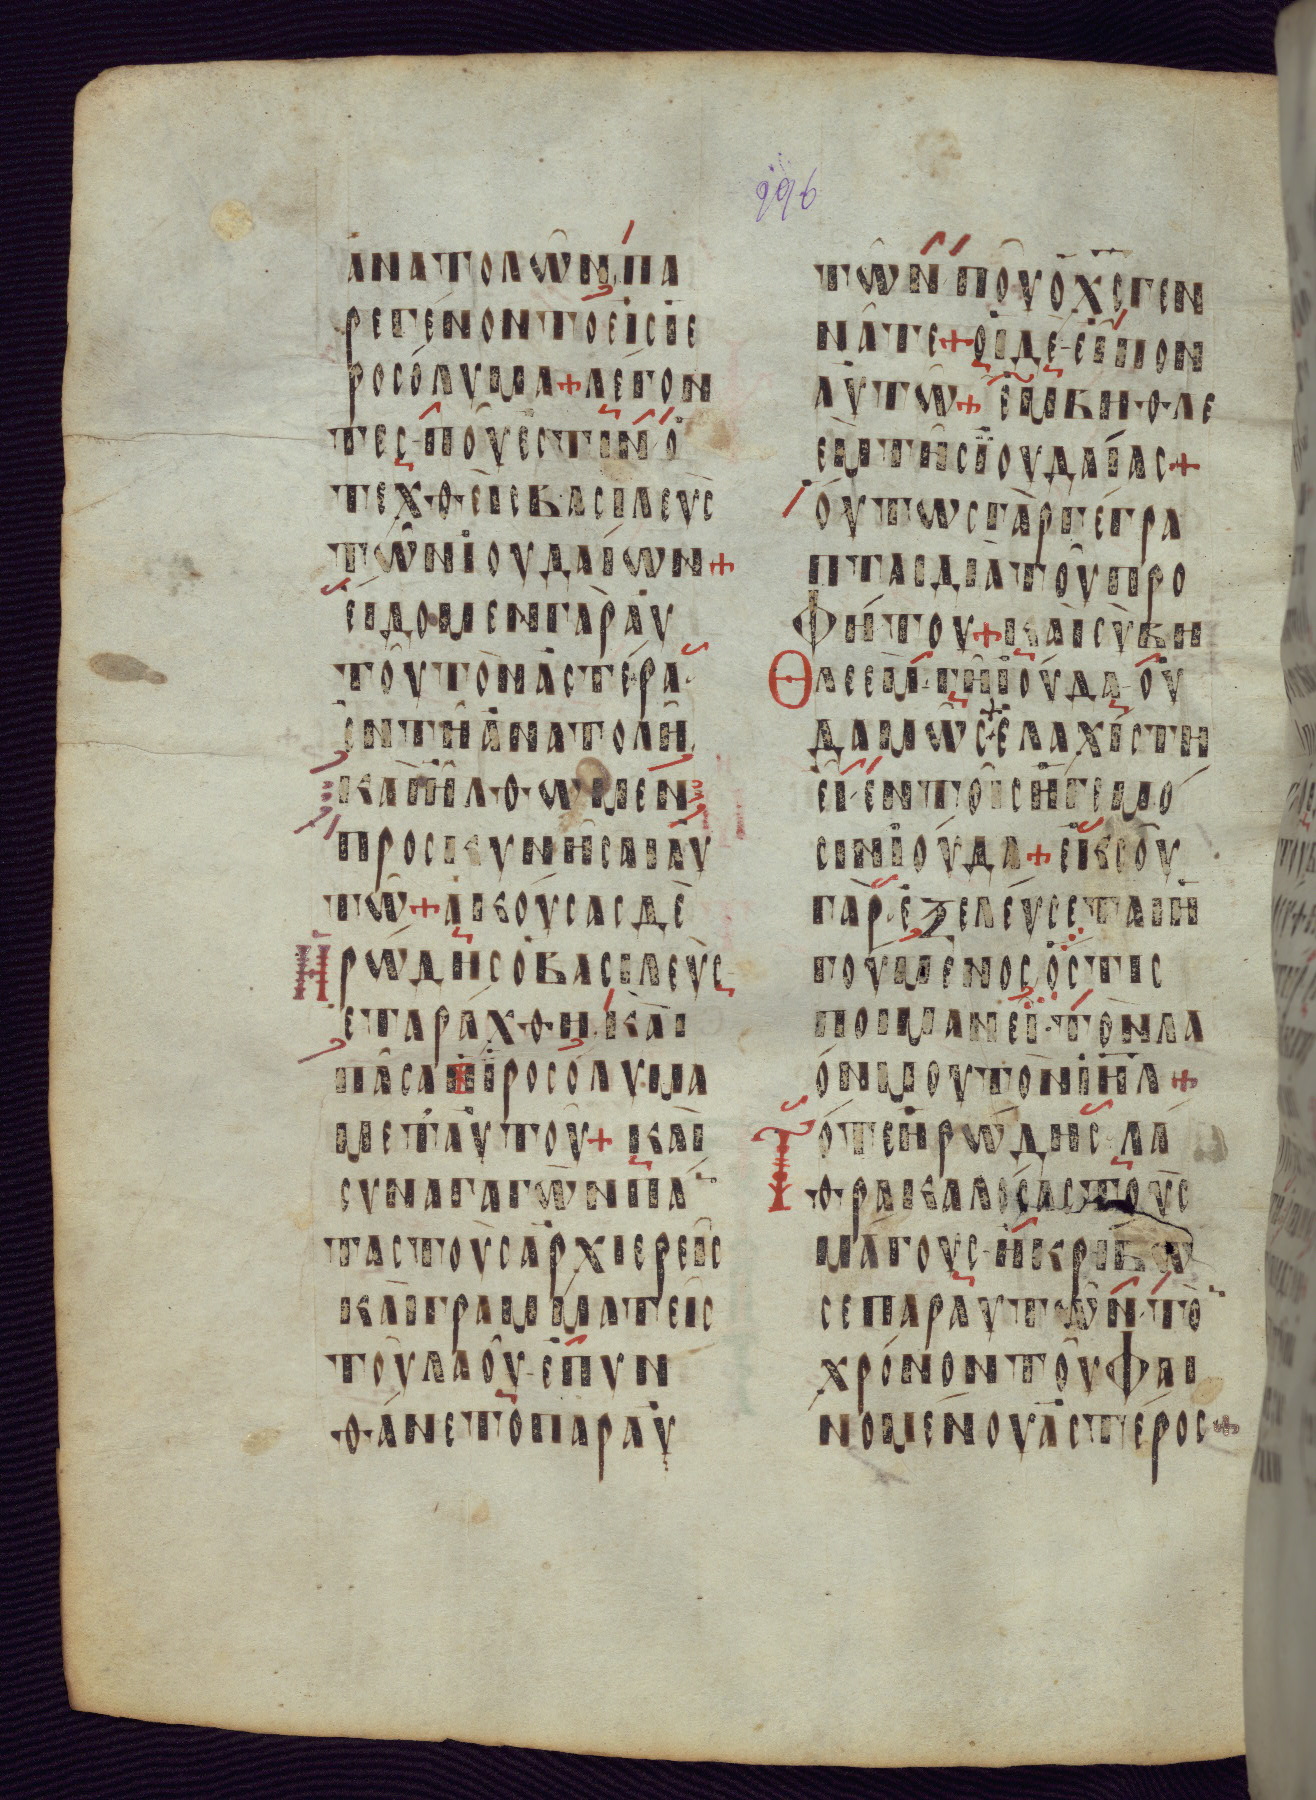 996
ἀνατολῶν πα
ρεγένοντο εἰς ἱε
ροσόλυμα + λέγον
τες ποῦ ἐστιν ὁ
τεχθεὶς βασιλεὺς
τῶν ἰουδαίων +
εἴδομεν γὰρ αὐ
τοῦ τὸν ἀστέρα
ἐν τῆ ἀνατολῆ
καὶ ἤλθωμεν
προσκυνῆσαι αὐ
τῶ + ἀκούσας δὲ
Ηρώδης ὁ βασιλεὺς
ἐταράχθη καὶ
πᾶσα ἱροσόλυμα
μετ' αὐτοῦ + καὶ
συναγαγὼν πά
τας τοὺς ἀρχιερεῖς
καὶ γραμματεῖς
τοῦ λαοῦ ἐπυν
θάνετο παρ' αὐ
τῶν ποῦ ὁ χς γεν
νᾶτε + οἱ δὲ εἶπον
αὐτῶ + ἐν βηθλε
ἐμ τῆς ἰουδαίας +
οὕτως γὰρ γέγρα
πται διὰ τοῦ προ
φήτου + καὶ σὺ βη
Θλεεμ γῆ ἰούδα οὐ
δαμῶς ἐλαχίστη
εἶ ἐν τοῖς ἡγεμό
σιν ἰούδα + ἐκ σοῦ
γὰρ ἐξελεύσεται ἡ
γούμενος ὅστις
ποιμανεῖ τὸν λα
όν μου τὸν ἰηλ +
Τότε ἡρώδης λά
θρα καλέσας τοὺς
μάγους ἠκρίβω
σε παρ αυτῶν τὸ
χρόνον τοῦ φαι
νομένου ἀστέρος +